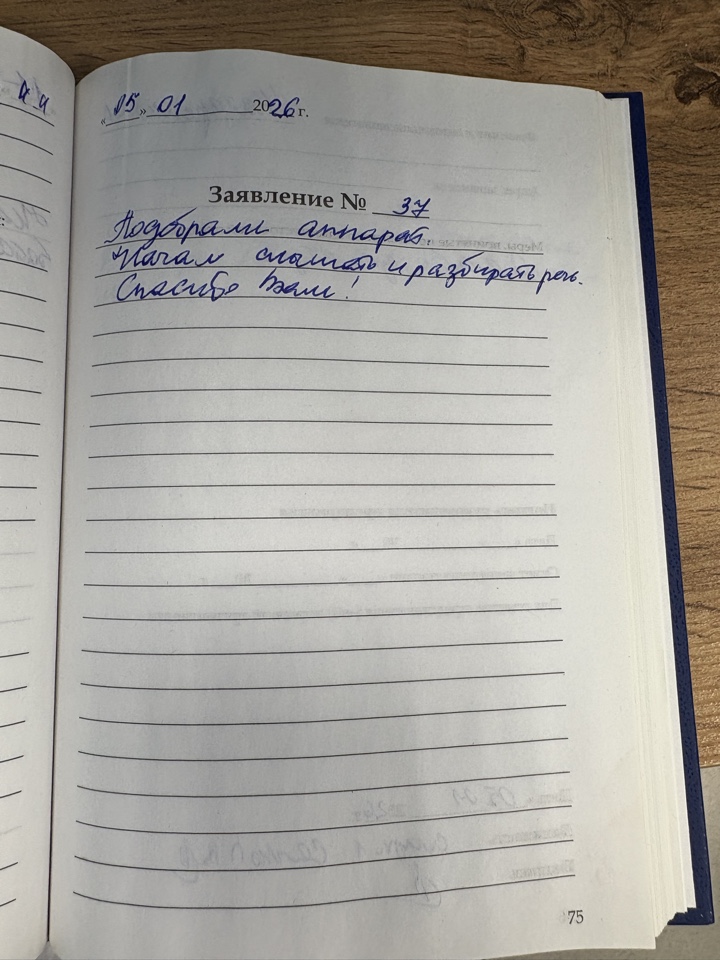 «05» 01 2026 г.
Заявление № 37
Подобрали аппарат.
Начал слышать и разбирать речь.
Спасибо Вам!
75